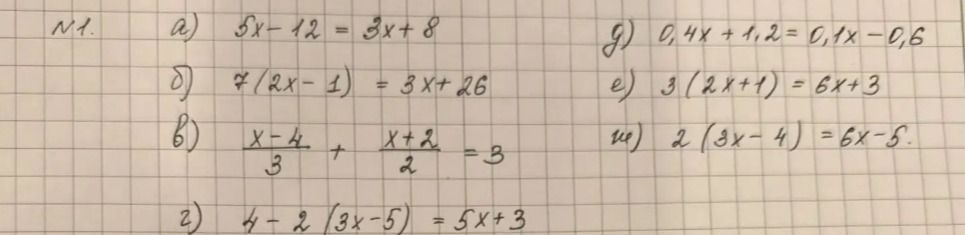 N1. а) 5x - 12 = 3x + 8
б) 7(2x - 1) = 3x + 26
в) (x - 4)/3 + (x + 2)/2 = 3
г) 4 - 2(3x - 5) = 5x + 3
д) 0,4x + 1,2 = 0,1x - 0,6
е) 3(2x + 1) = 6x + 3
ж) 2(3x - 4) = 6x - 5.